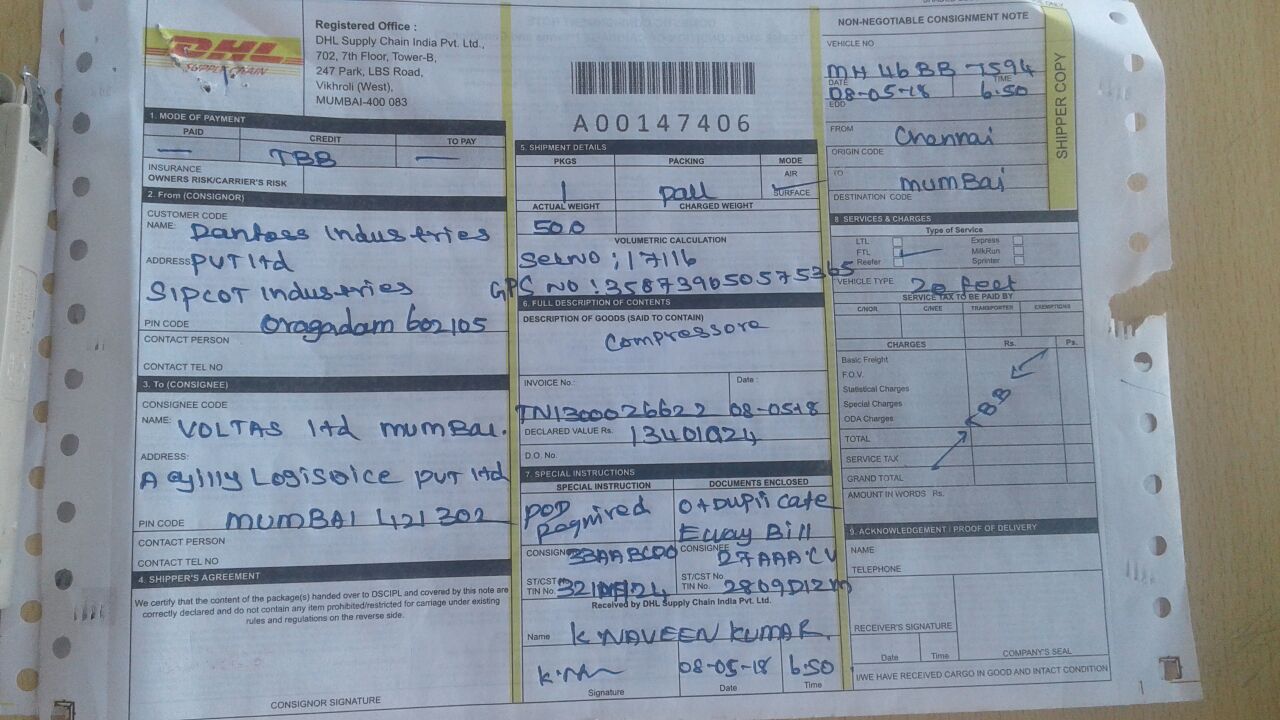 DHL
SUPPLY CHAIN
Registered Office :
DHL Supply Chain India Pvt. Ltd.,
702, 7th Floor, Tower-B,
247 Park, LBS Road,
Vikhroli (West),
MUMBAI-400 083
A00147406
NON-NEGOTIABLE CONSIGNMENT NOTE
VEHICLE NO
MH 46 BB 7594
DATE TIME
08-05-18 6.50
EDD
FROM Chennai
ORIGIN CODE
TO mumBai
DESTINATION CODE
SHIPPER COPY
1. MODE OF PAYMENT
PAID CREDIT TO PAY
— TBB —
INSURANCE
OWNERS RISK/CARRIER'S RISK
2. From (CONSIGNOR)
CUSTOMER CODE
NAME: Danfoss Industries
ADDRESS: PVT ltd
SIPCOT Industries
PIN CODE Oragadam 602105
CONTACT PERSON
CONTACT TEL NO
3. To (CONSIGNEE)
CONSIGNEE CODE
NAME: VOLTAS ltd mumBai.
ADDRESS:
Logisvice PVT ltd
PIN CODE MUMBAI 421302
CONTACT PERSON
CONTACT TEL NO
4. SHIPPER'S AGREEMENT
We certify that the content of the package(s) handed over to DSCIPL and covered by this note are
correctly declared and do not contain any item prohibited/restricted for carriage under existing
rules and regulations on the reverse side.
CONSIGNOR SIGNATURE
5. SHIPMENT DETAILS
PKGS PACKING MODE
1 pall AIR
SURFACE
ACTUAL WEIGHT CHARGED WEIGHT
500
VOLUMETRIC CALCULATION
SELNO : 17116
GPS NO : 358739050575365
6. FULL DESCRIPTION OF CONTENTS
DESCRIPTION OF GOODS (SAID TO CONTAIN)
Compressore
INVOICE No.: Date :
TN1300026622 08-05-18
DECLARED VALUE Rs. 13401924
D.O. No.
7. SPECIAL INSTRUCTIONS
SPECIAL INSTRUCTION DOCUMENTS ENCLOSED
POD O+Duplicate
Required Eway Bill
CONSIGNOR 33AABCD0 CONSIGNEE 27AAACV
ST/CST No. ST/CST No.
TIN No. TIN No. 2809D1ZM
Received by DHL Supply Chain India Pvt. Ltd.
Name K NAVEEN KUMAR.
08-05-18 6.50
Signature Date Time
8 SERVICES & CHARGES
Type of Service
LTL Express
FTL MilkRun
Reefer Sprinter
VEHICLE TYPE 20 feet
SERVICE TAX TO BE PAID BY
C/NOR C/NEE TRANSPORTER EXEMPTIONS
CHARGES Rs. Ps.
Basic Freight
F.O.V.
Statistical Charges
Special Charges
ODA Charges
TOTAL
SERVICE TAX
GRAND TOTAL
AMOUNT IN WORDS Rs.
9. ACKNOWLEDGEMENT / PROOF OF DELIVERY
NAME
TELEPHONE
RECEIVER'S SIGNATURE
Date Time
COMPANY'S SEAL
I/WE HAVE RECEIVED CARGO IN GOOD AND INTACT CONDITION